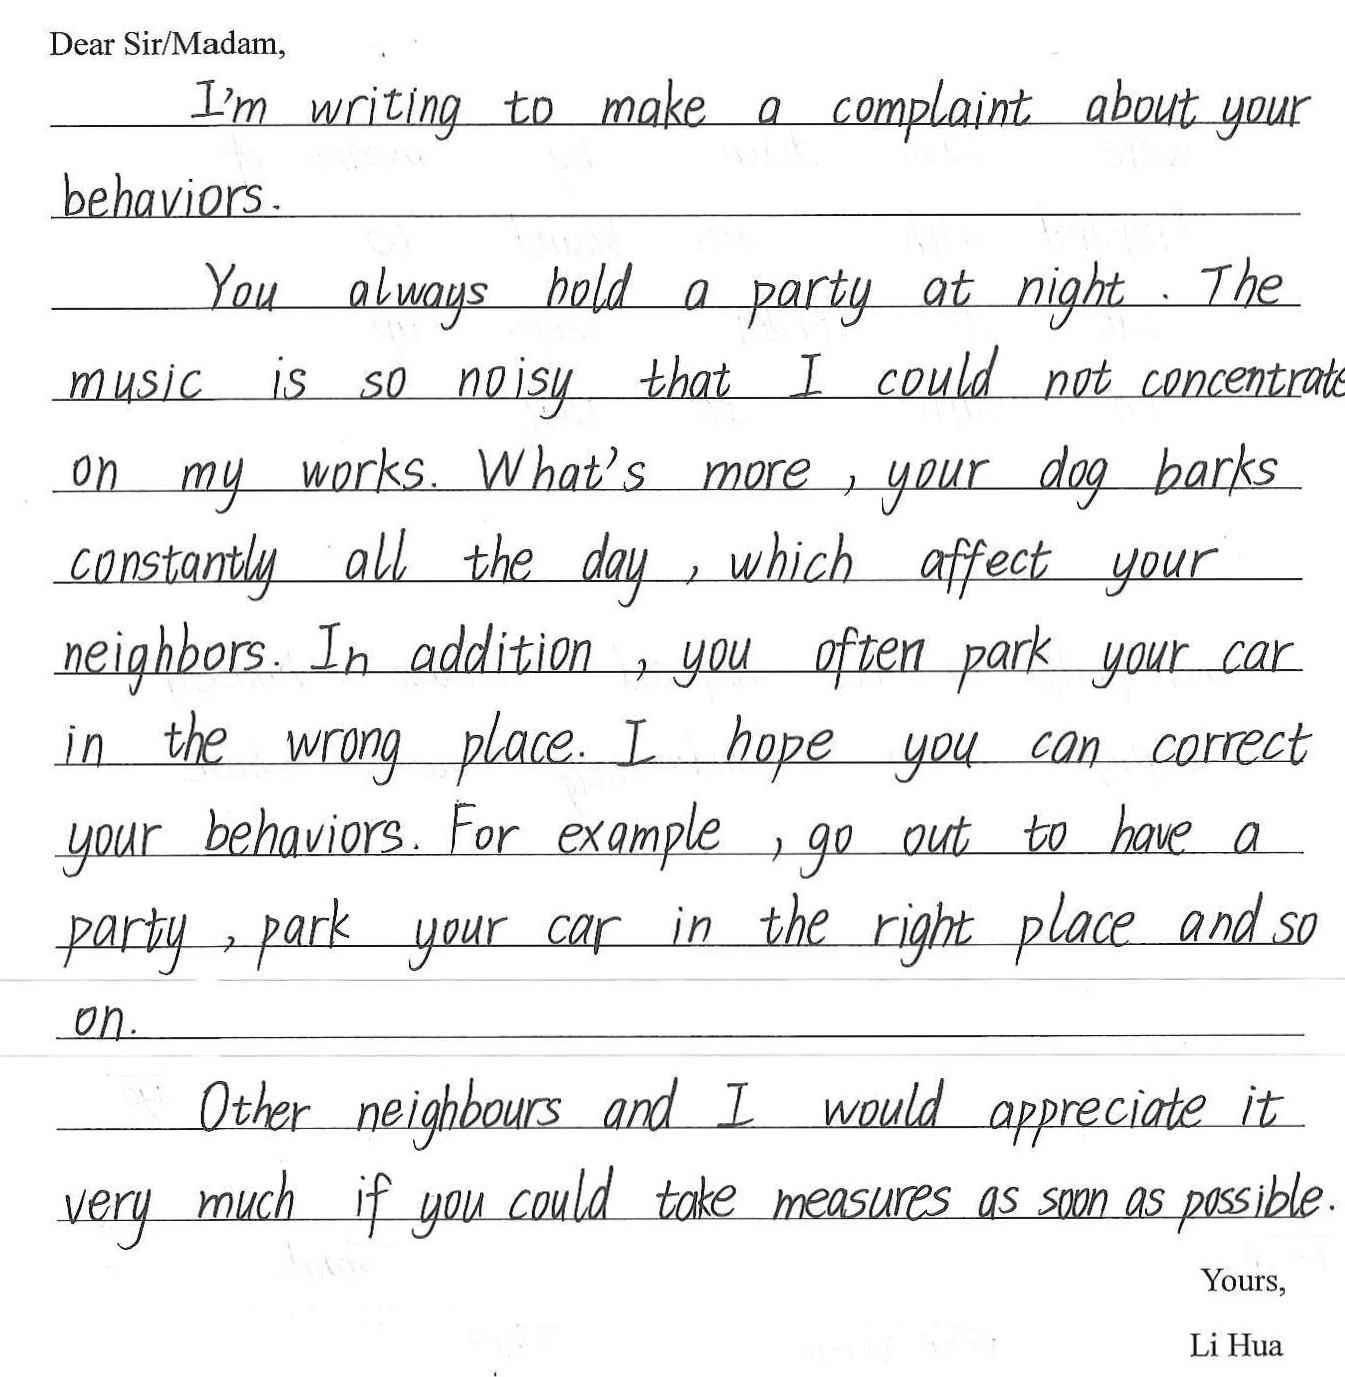 Dear Sir/Madam,
I'm writing to make a complaint about your
behaviors.
You always hold a party at night. The
music is so noisy that I could not concentrate
on my works. What's more, your dog barks
constantly all the day, which affect your
neighbors. In addition, you often park your car
in the wrong place. I hope you can correct
your behaviors. For example, go out to have a
party, park your car in the right place and so
on.
Other neighbours and I would appreciate it
very much if you could take measures as soon as possible.
Yours,
Li Hua